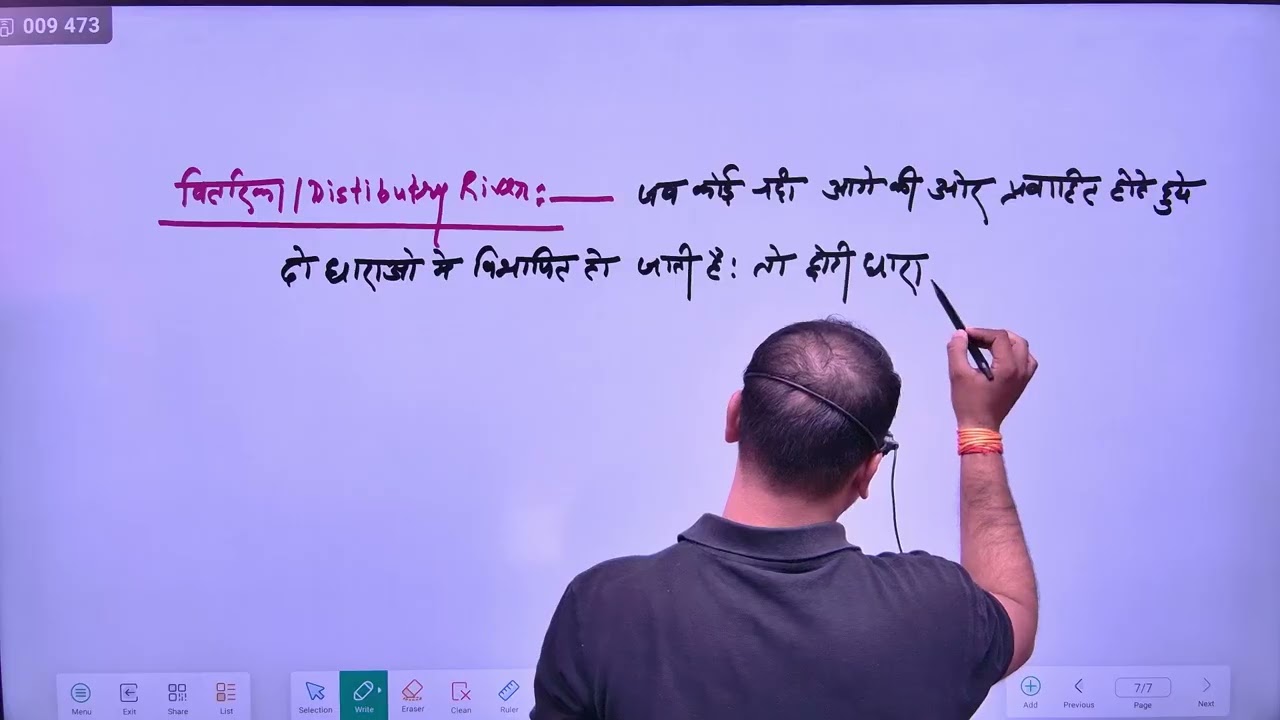 009 473
वितरिका / Distibutry River :— जब कोई नदी आगे की ओर प्रवाहित होते हुये
दो धाराओ मे विभाजित हो जाती है : तो छोटी धारा
Menu Exit Share List Selection Write Eraser Clean Ruler Add Previous 7/7 Page Next